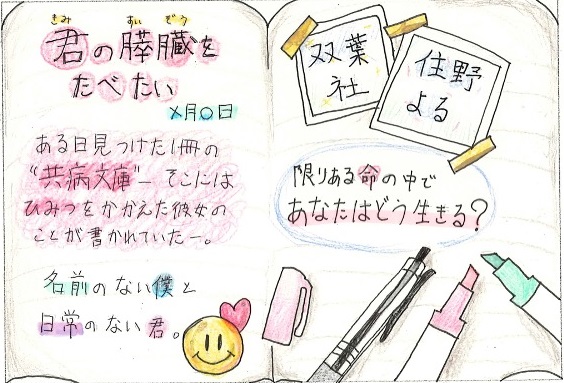 きみ すい ぞう
君の膵臓を
たべたい
×月〇日
ある日見つけた1冊の
"共病文庫"― そこには
ひみつをかかえた彼女の
ことが書かれていたー。
名前のない僕と
日常のない君。
双葉
社
住野
よる
限りある命の中で
あなたはどう生きる?